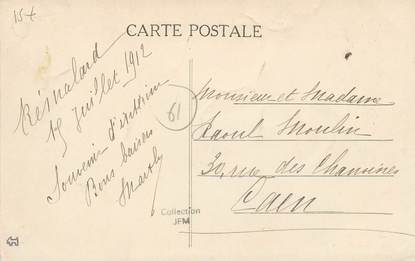 15€
CARTE POSTALE
Rémalard
15 Juillet 1912
Souvenir d'
Bons baisers
61
Monsieur et Madame
Raoul Moulin
30, rue des Chanoines
Caen
Collection
JFM